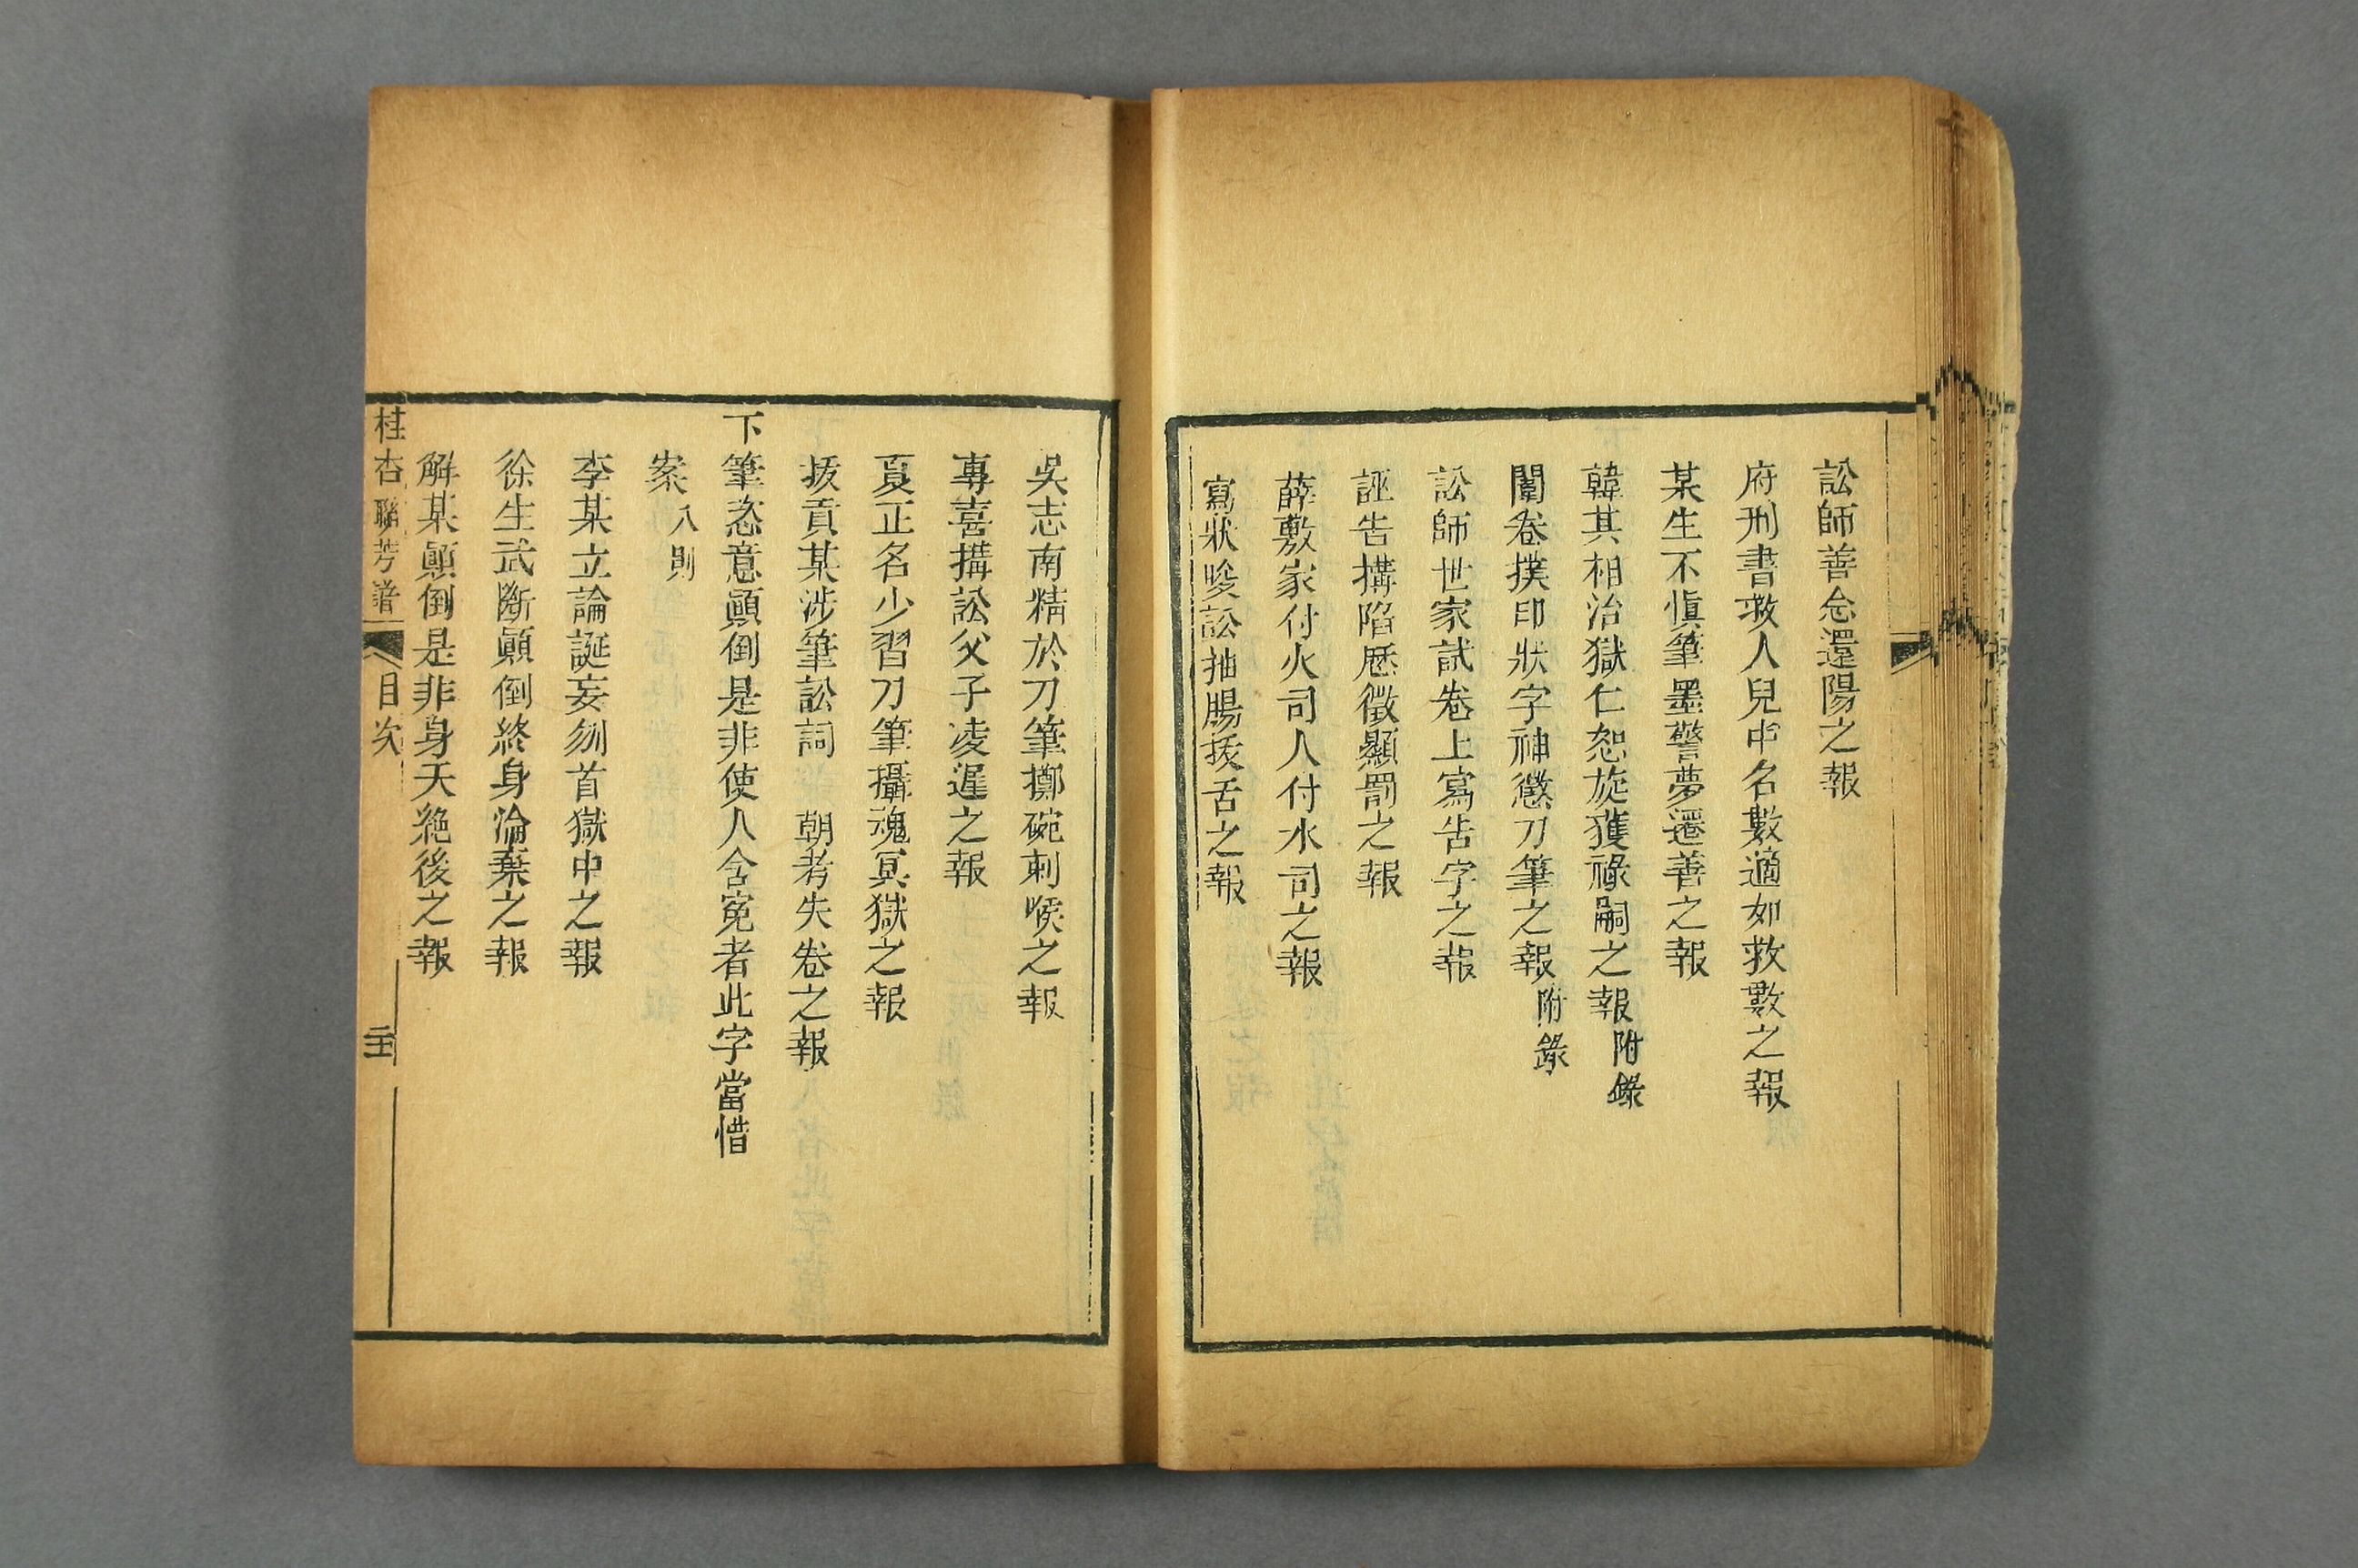 訟師善念還陽之報
府刑書救人兒中名數適如救數之報
某生不慎筆墨警夢遷善之報
韓其相治獄仁恕旋獲祿嗣之報附錄
闈卷撲印狀字神懲刀筆之報附錄
訟師世家試卷上寫告字之報
誣告搆陷歷徵顯罰之報
薛敷家付火司人付水司之報
寫狀唆訟抽腸拔舌之報
吳志南精於刀筆擲碗刺喉之報
專喜搆訟父子凌遲之報
夏正名少習刀筆攝魂冥獄之報
拔貢某涉筆訟詞 朝考失卷之報
下筆恣意顚倒是非使人含冤者此字當惜
案八則
李某立論誕妄刎首獄中之報
徐生武斷顚倒終身淪棄之報
解某顚倒是非身夭絶後之報
桂杏聯芳譜 目次